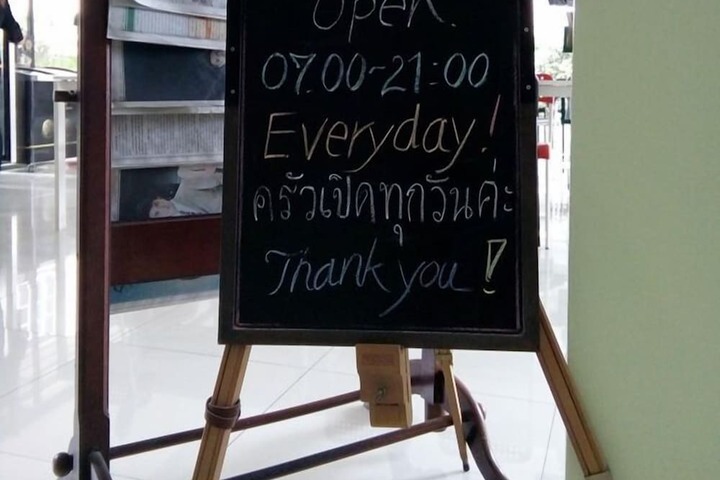 Open.
07.00-21:00
Everyday!
ครัวเปิดทุกวันค่ะ
Thank you!